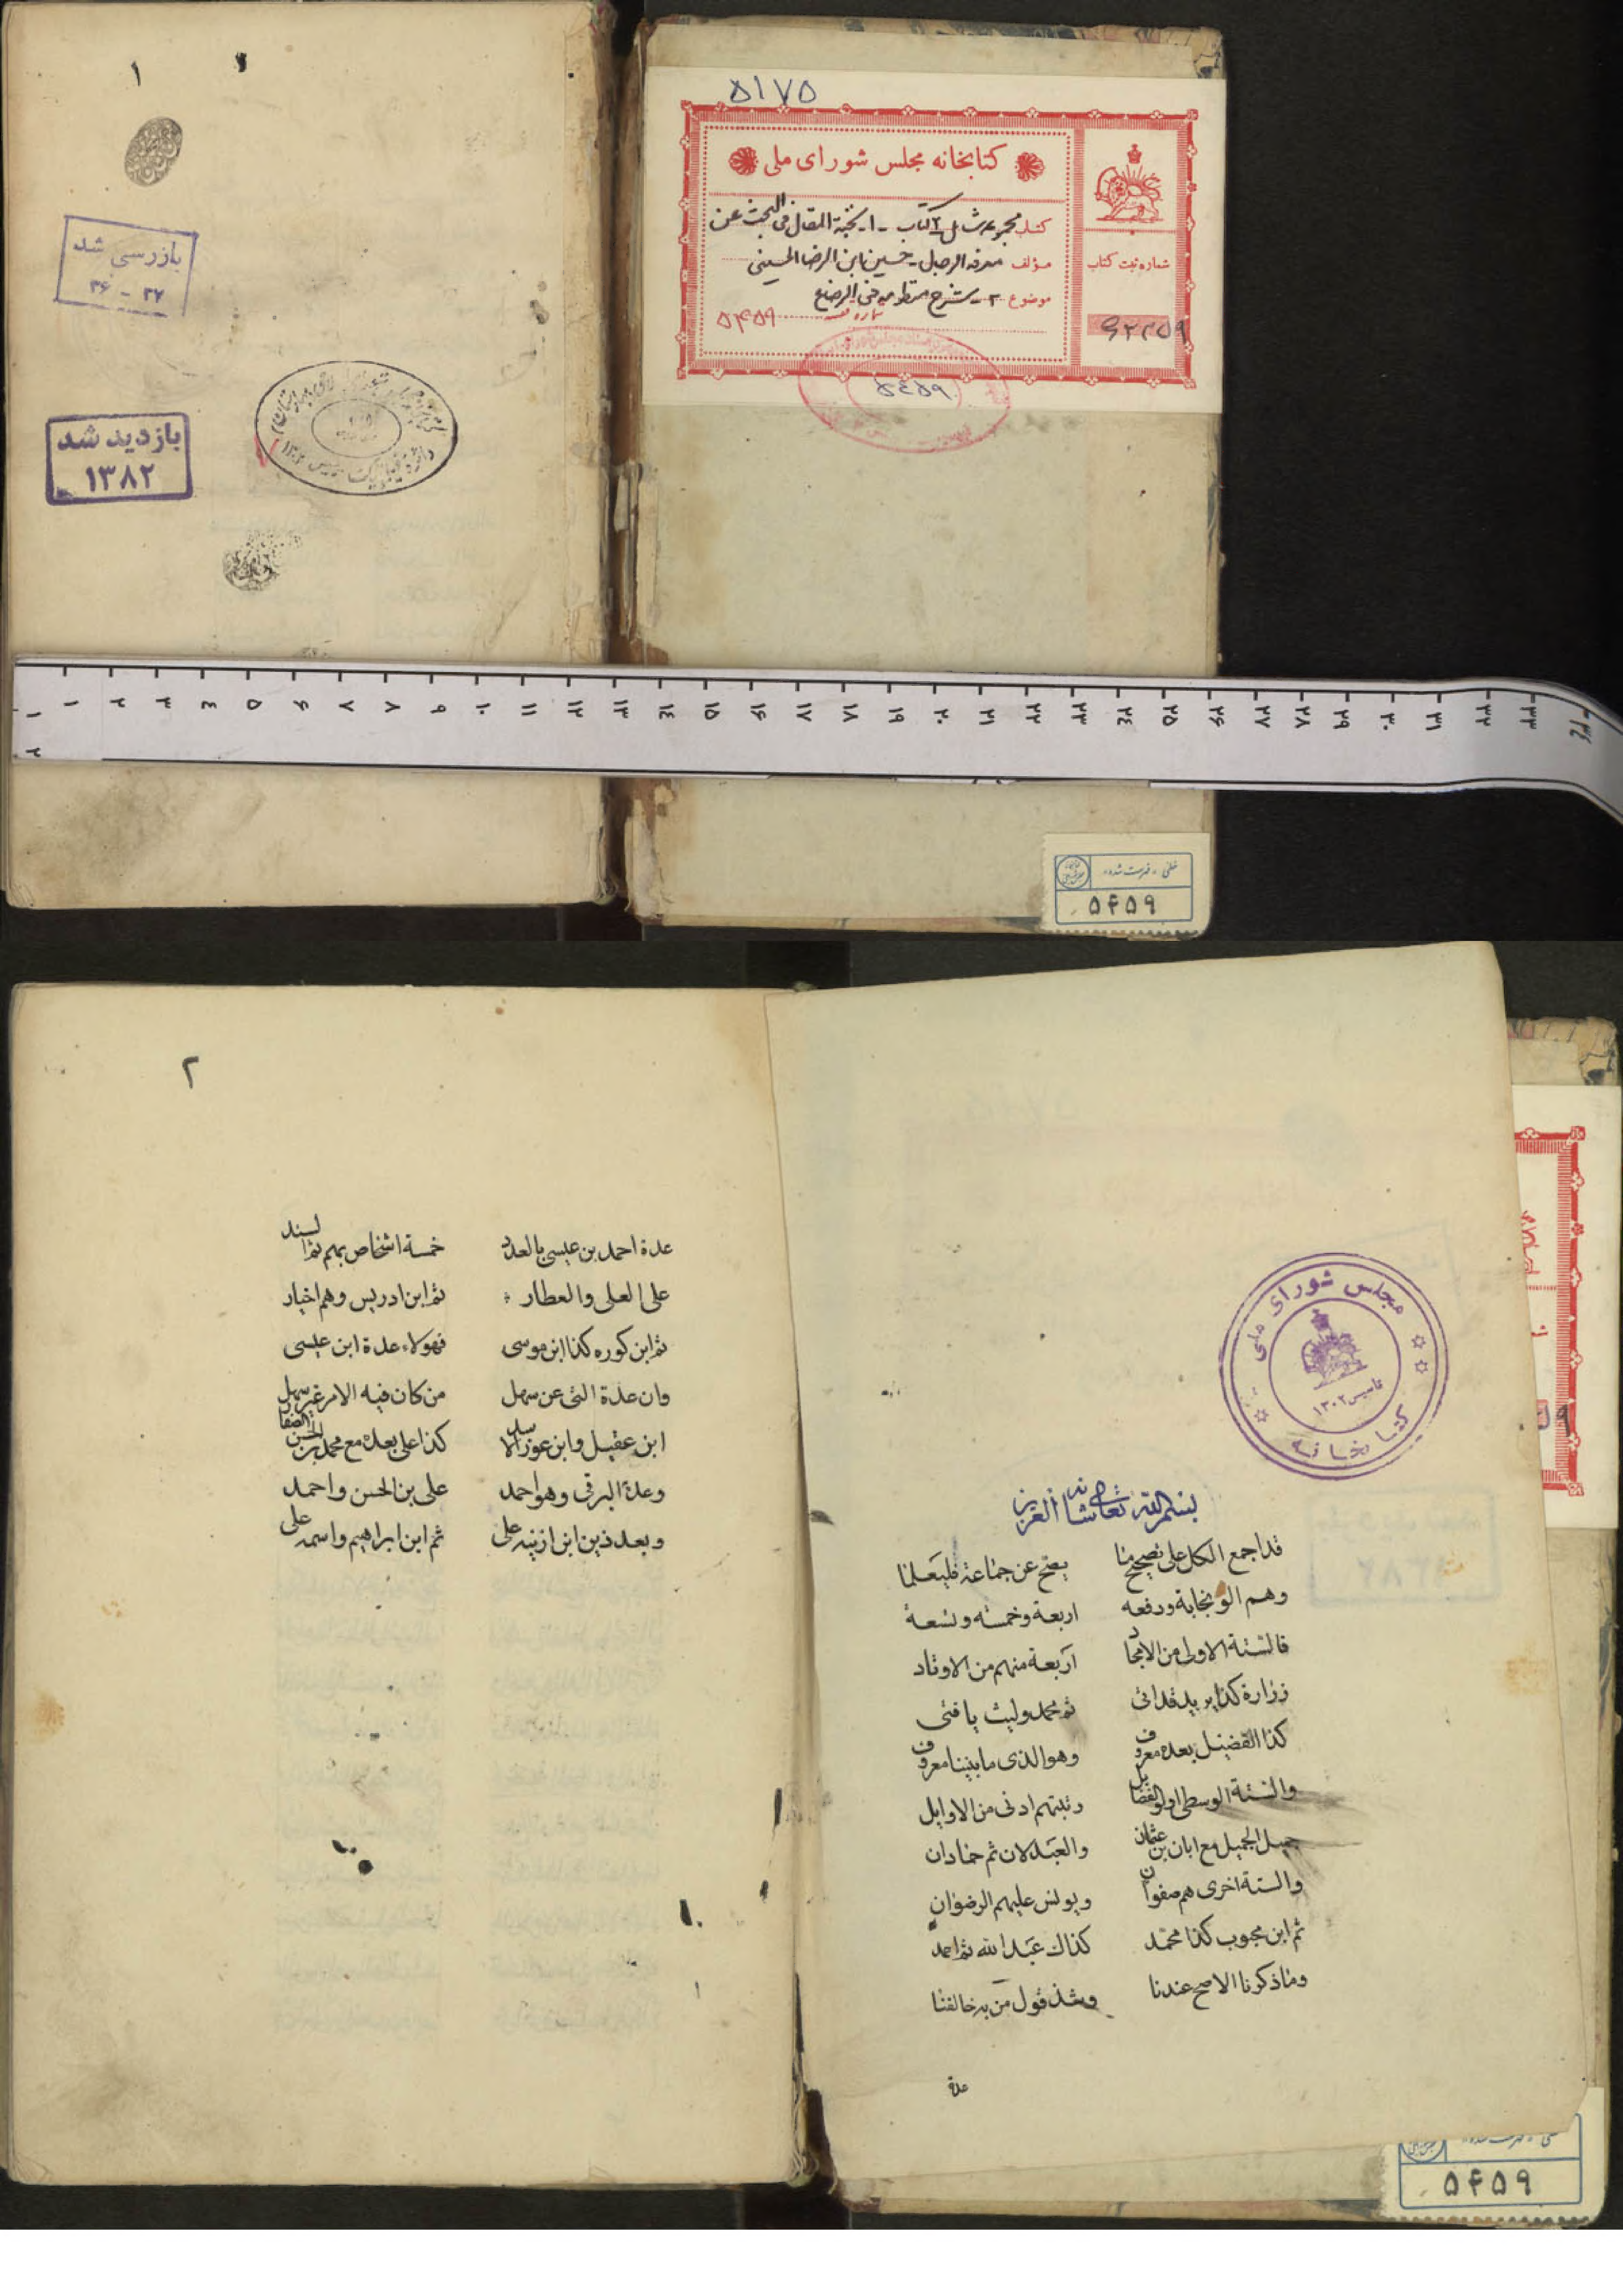 ۵۱۷۵
کتابخانه مجلس شورای ملی
کتاب مجموعه شامل ۲ کتاب - ۱- نخبة المقال فی البحث عن
مؤلف معرفة الرجال - حسین ابن الرضا الحسینی
موضوع ۲- شرح منظومه فی الرضاع
۵۴۵۹
شماره ثبت کتاب
۵۴۵۹
خطی - فهرست شده
۵۴۵۹
۱
بازرسی شد
۳۶ - ۳۷
بازدید شد
۱۳۸۲
۱ ۲ ۳ ٤ ۵ ۶ ۷ ۸ ۹ ۱۰ ۱۱ ۱۲ ۱۳ ۱٤ ۱۵ ۱۶ ۱۷ ۱۸ ۱۹ ۲۰ ۲۱ ۲۲ ۲۳ ۲٤ ۲۵ ۲۶ ۲۷ ۲۸ ۲۹ ۳۰ ۳۱ ۳۲ ۳۳ ۳٤
مجلس شورای ملی
کتابخانه
تاسیس ۱۳۰۲
بسم الله تعالی شانه العزیز
قد اجمع الكل على تصحيح ما يصح عن جماعة فليعلما
وهم الو نجابة ورفعه اربعة وخمسه وتسعة
فالستة الاولى من الامجاد اربعة منهم من الاوتاد
زرارة كذا بريد قد اتى ثم محمد وليث يا فتى
كذا الفضيل بعده معروف وهو الذى ما بيننا معروف
والستة الوسطى اولو الفضايل رتبتهم ادنى من الاوايل
جميل الجميل مع ابان بن عثمان والعبدلان ثم حمادان
والستة اخرى هم صفوان ويونس عليهم الرضوان
ثم ابن محبوب كذا محمد كذاك عبد الله ثم احمد
وما ذكرنا الاصح عندنا وشذ قول من به خالفنا
عدة
۲
عدة احمد بن عيسى بالعدد خمسة اشخاص بهم ثم السند
على العلى والعطار ثم ابن ادريس وهم اخيار
ثم ابن كوره كذا ابن موسى فهولاء عدة ابن عيسى
وان عدة التى عن سهل من كان فيه الامر غير سهل
ابن عقيل وابن عون الاسدى كذا على بعده مع محمد بن الحسن الصفار
وعدة البرقى وهو احمد على بن الحسن واحمد
وبعد ذين ابن اذينه على ثم ابن ابراهيم واسمه على
۵۴۵۹